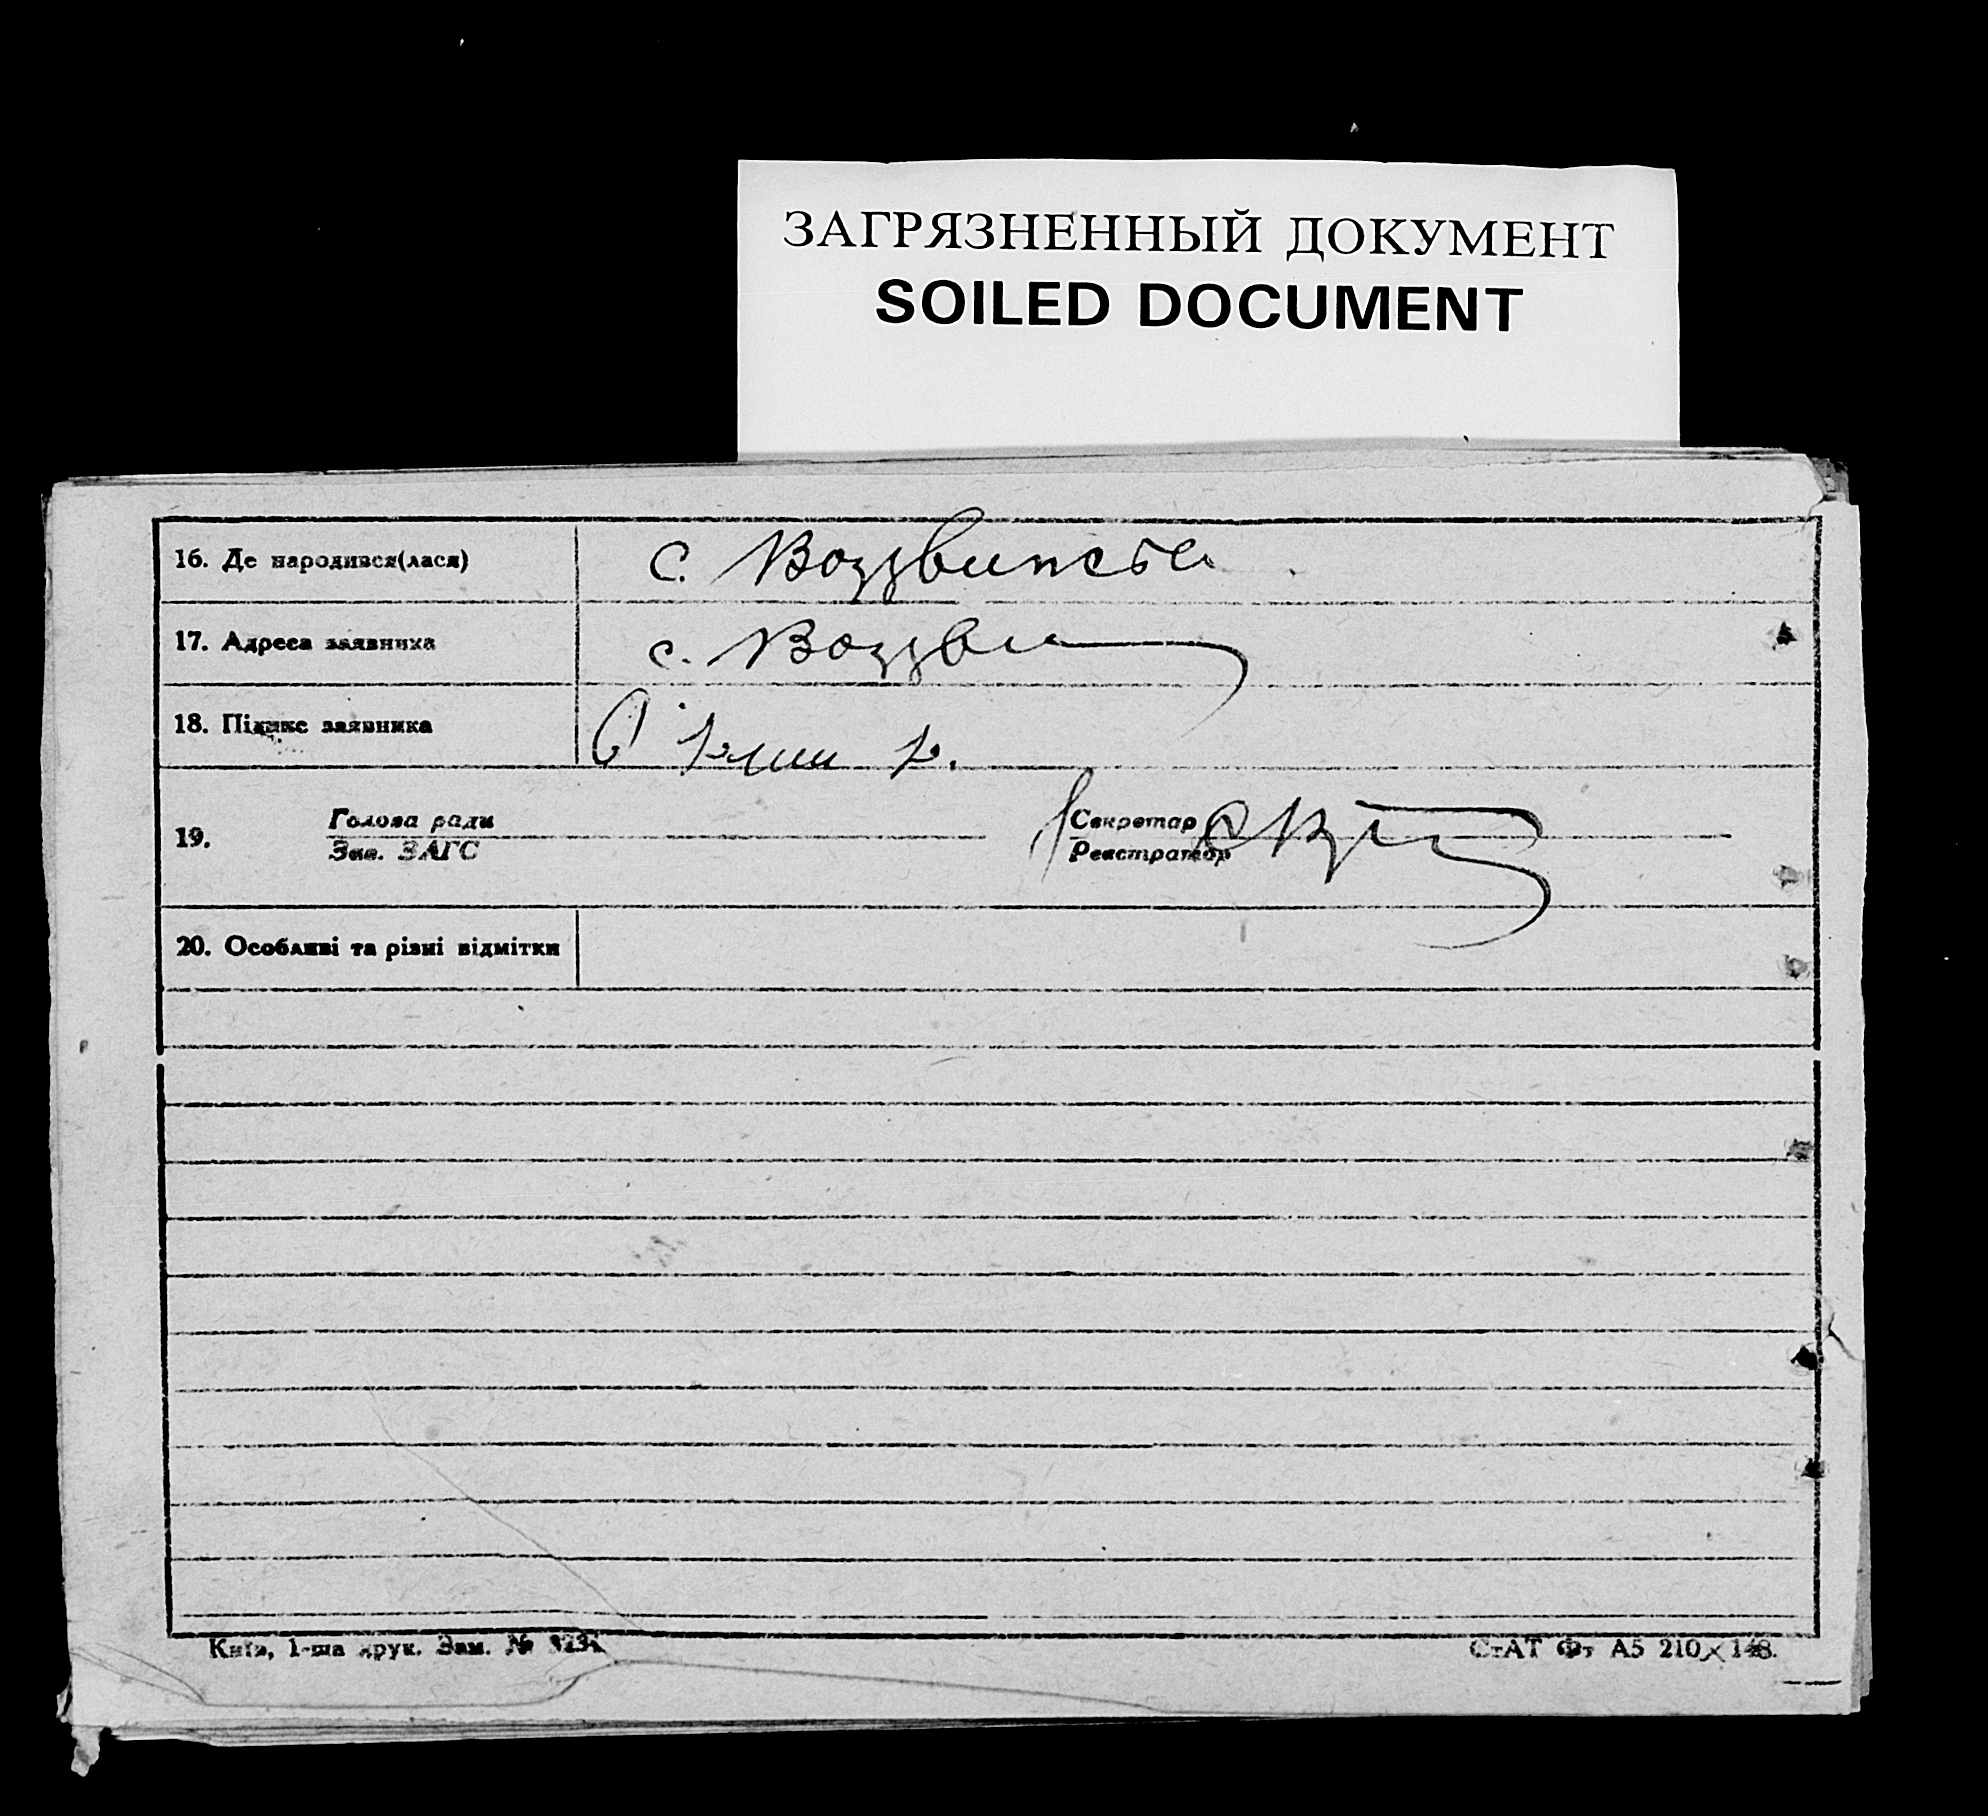 ЗАГРЯЗНЕННЫЙ ДОКУМЕНТ
SOILED DOCUMENT
16. Де народився(лася) с.
17. Адреса заявника с. Воздви
18. Підпис заявника
19. Голова ради Секретар
Зав. ЗАГС Реєстратор
20. Особливі та різні відмітки
Київ, 1-ша друк. Зам. №
СтАТ Фт А5 210×148.